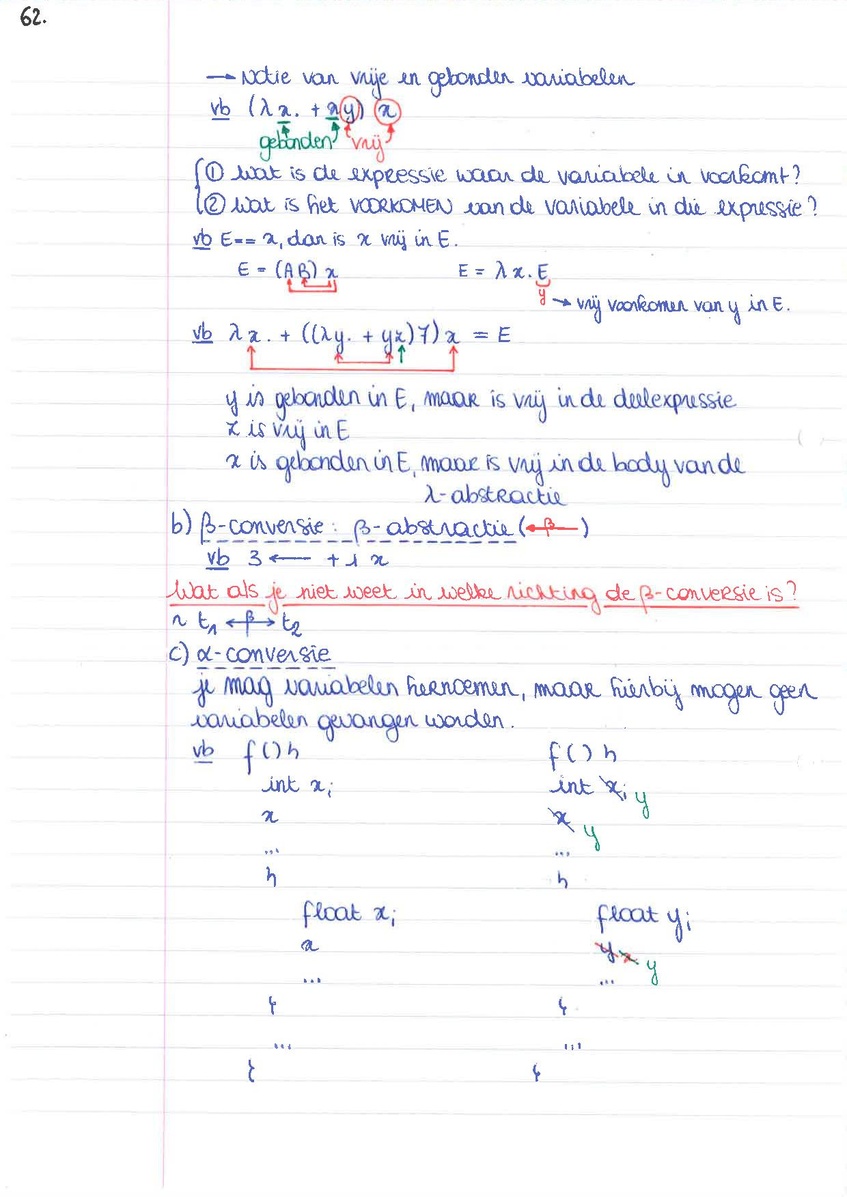 62.
→ Notie van vrije en gebonden variabelen
vb (λx. + xy) x
gebonden vrij
① Wat is de expressie waar de variabele in voorkomt?
② Wat is het VOORKOMEN van de variabele in die expressie?
vb E == x, dan is x vrij in E.
E = (AB) x E = λx.E
y → vrij voorkomen van y in E.
vb λx. + ((λy. + yz) 7) x = E
y is gebonden in E, maar is vrij in de deelexpressie
z is vrij in E
x is gebonden in E, maar is vrij in de body van de
λ-abstractie
b) β-conversie: β-abstractie (←β—)
vb 3 ← + 1 x
Wat als je niet weet in welke richting de β-conversie is?
~ t₁ ←β→ t₂
c) α-conversie
je mag variabelen hernoemen, maar hierbij mogen geen
variabelen gevangen worden.
vb f() { f() {
int x; int x; y
x x y
... ...
{ {
float x; float y;
x y x y
... ...
} }
... ...
} }